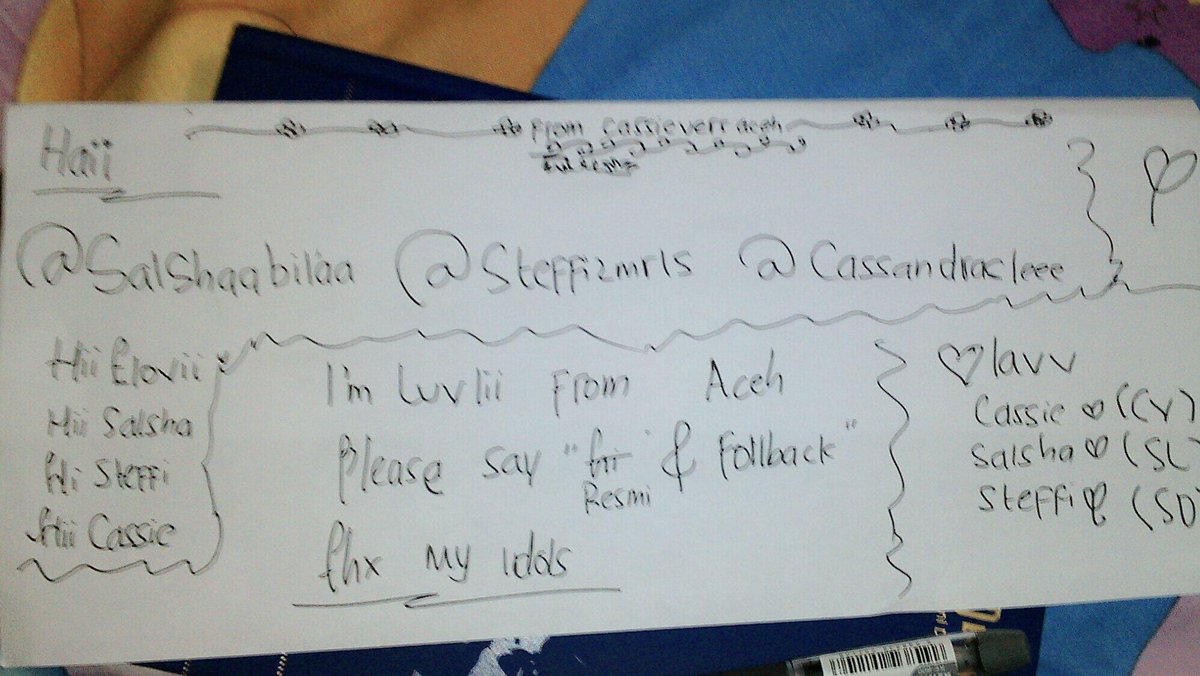 From cassieverr aceh
Haii
@Salshaabilaa @Steffizmrls @Cassandracleee
Hii Elovii
Hii Salsha
Hi Steffi
Hii Cassie
I'm Luvlii From Aceh
Please say " & Follback"
Resmi
thx My Idols
lavv
Cassie (CV)
Salsha (SL
Steffi (SD)